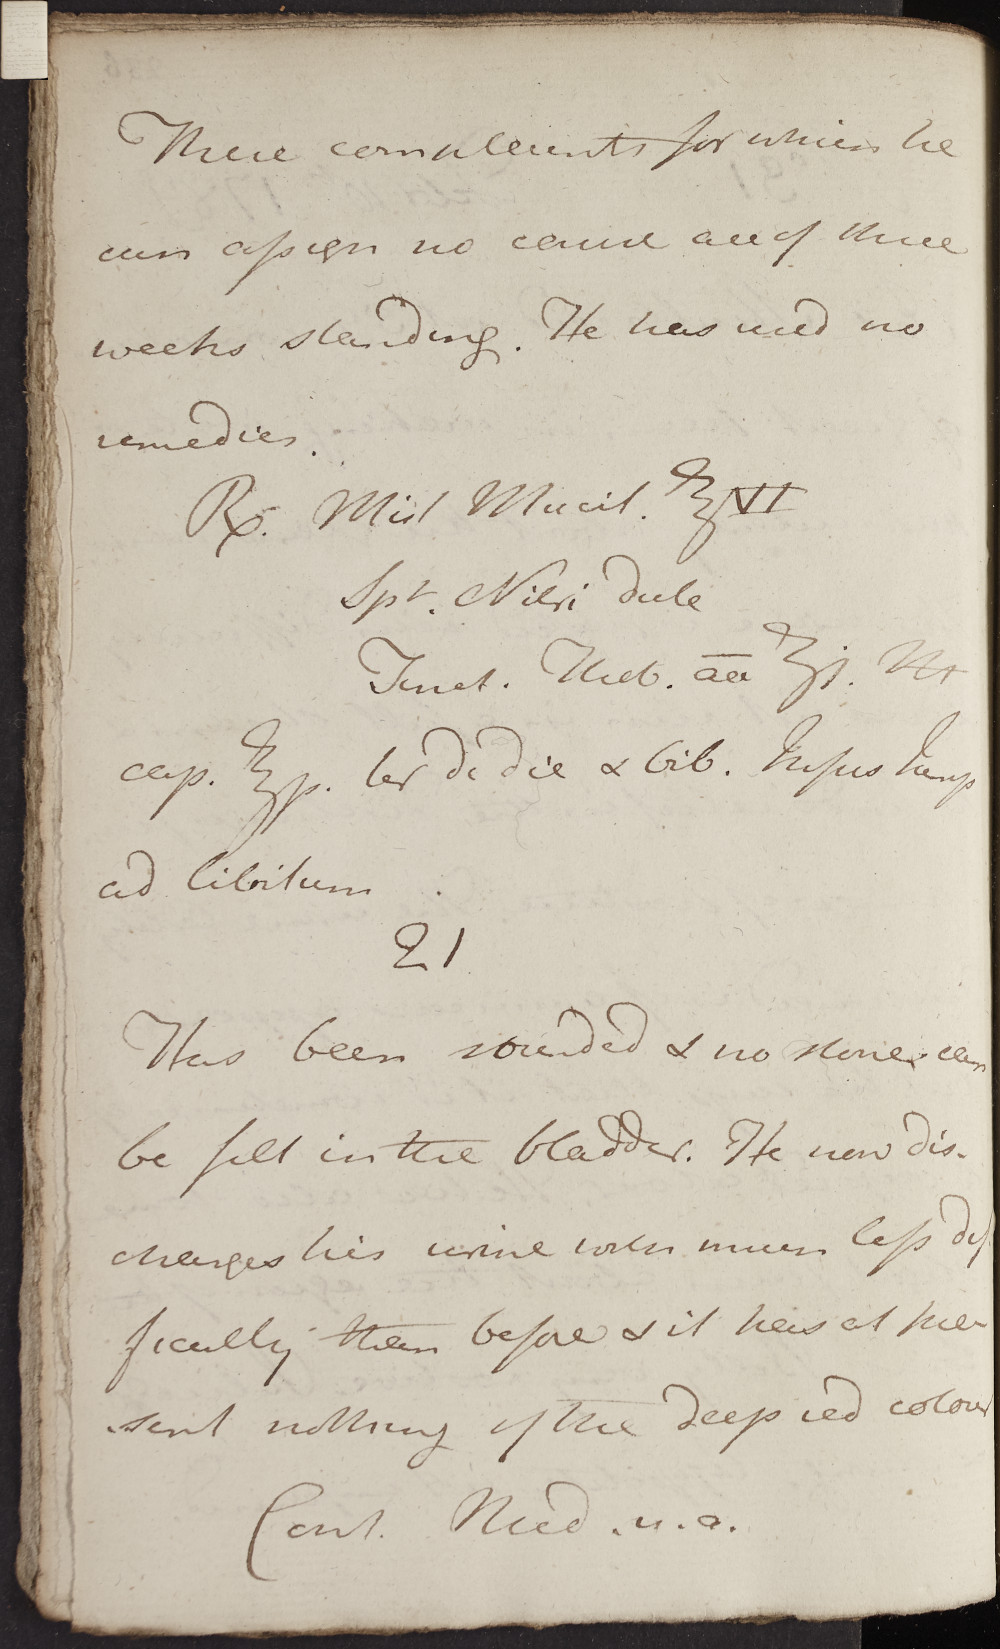 These complaints for which he
can assign no cause are of three
weeks standing. He has used no
remedies.
Rx. Mist Mucil. ℥VI
Spt. Nitri dulc
Tinct. Theb. āā ʒj. M
cap. ℥ſs. ter de die & bib. Infus
ad libitum
21
Has been sounded & no stone can
be felt in the bladder. He now dis-
charges his urine with much less dif
ficulty than before & it has at pre-
sent nothing of the deep red colour
Cont. Med. u.a.